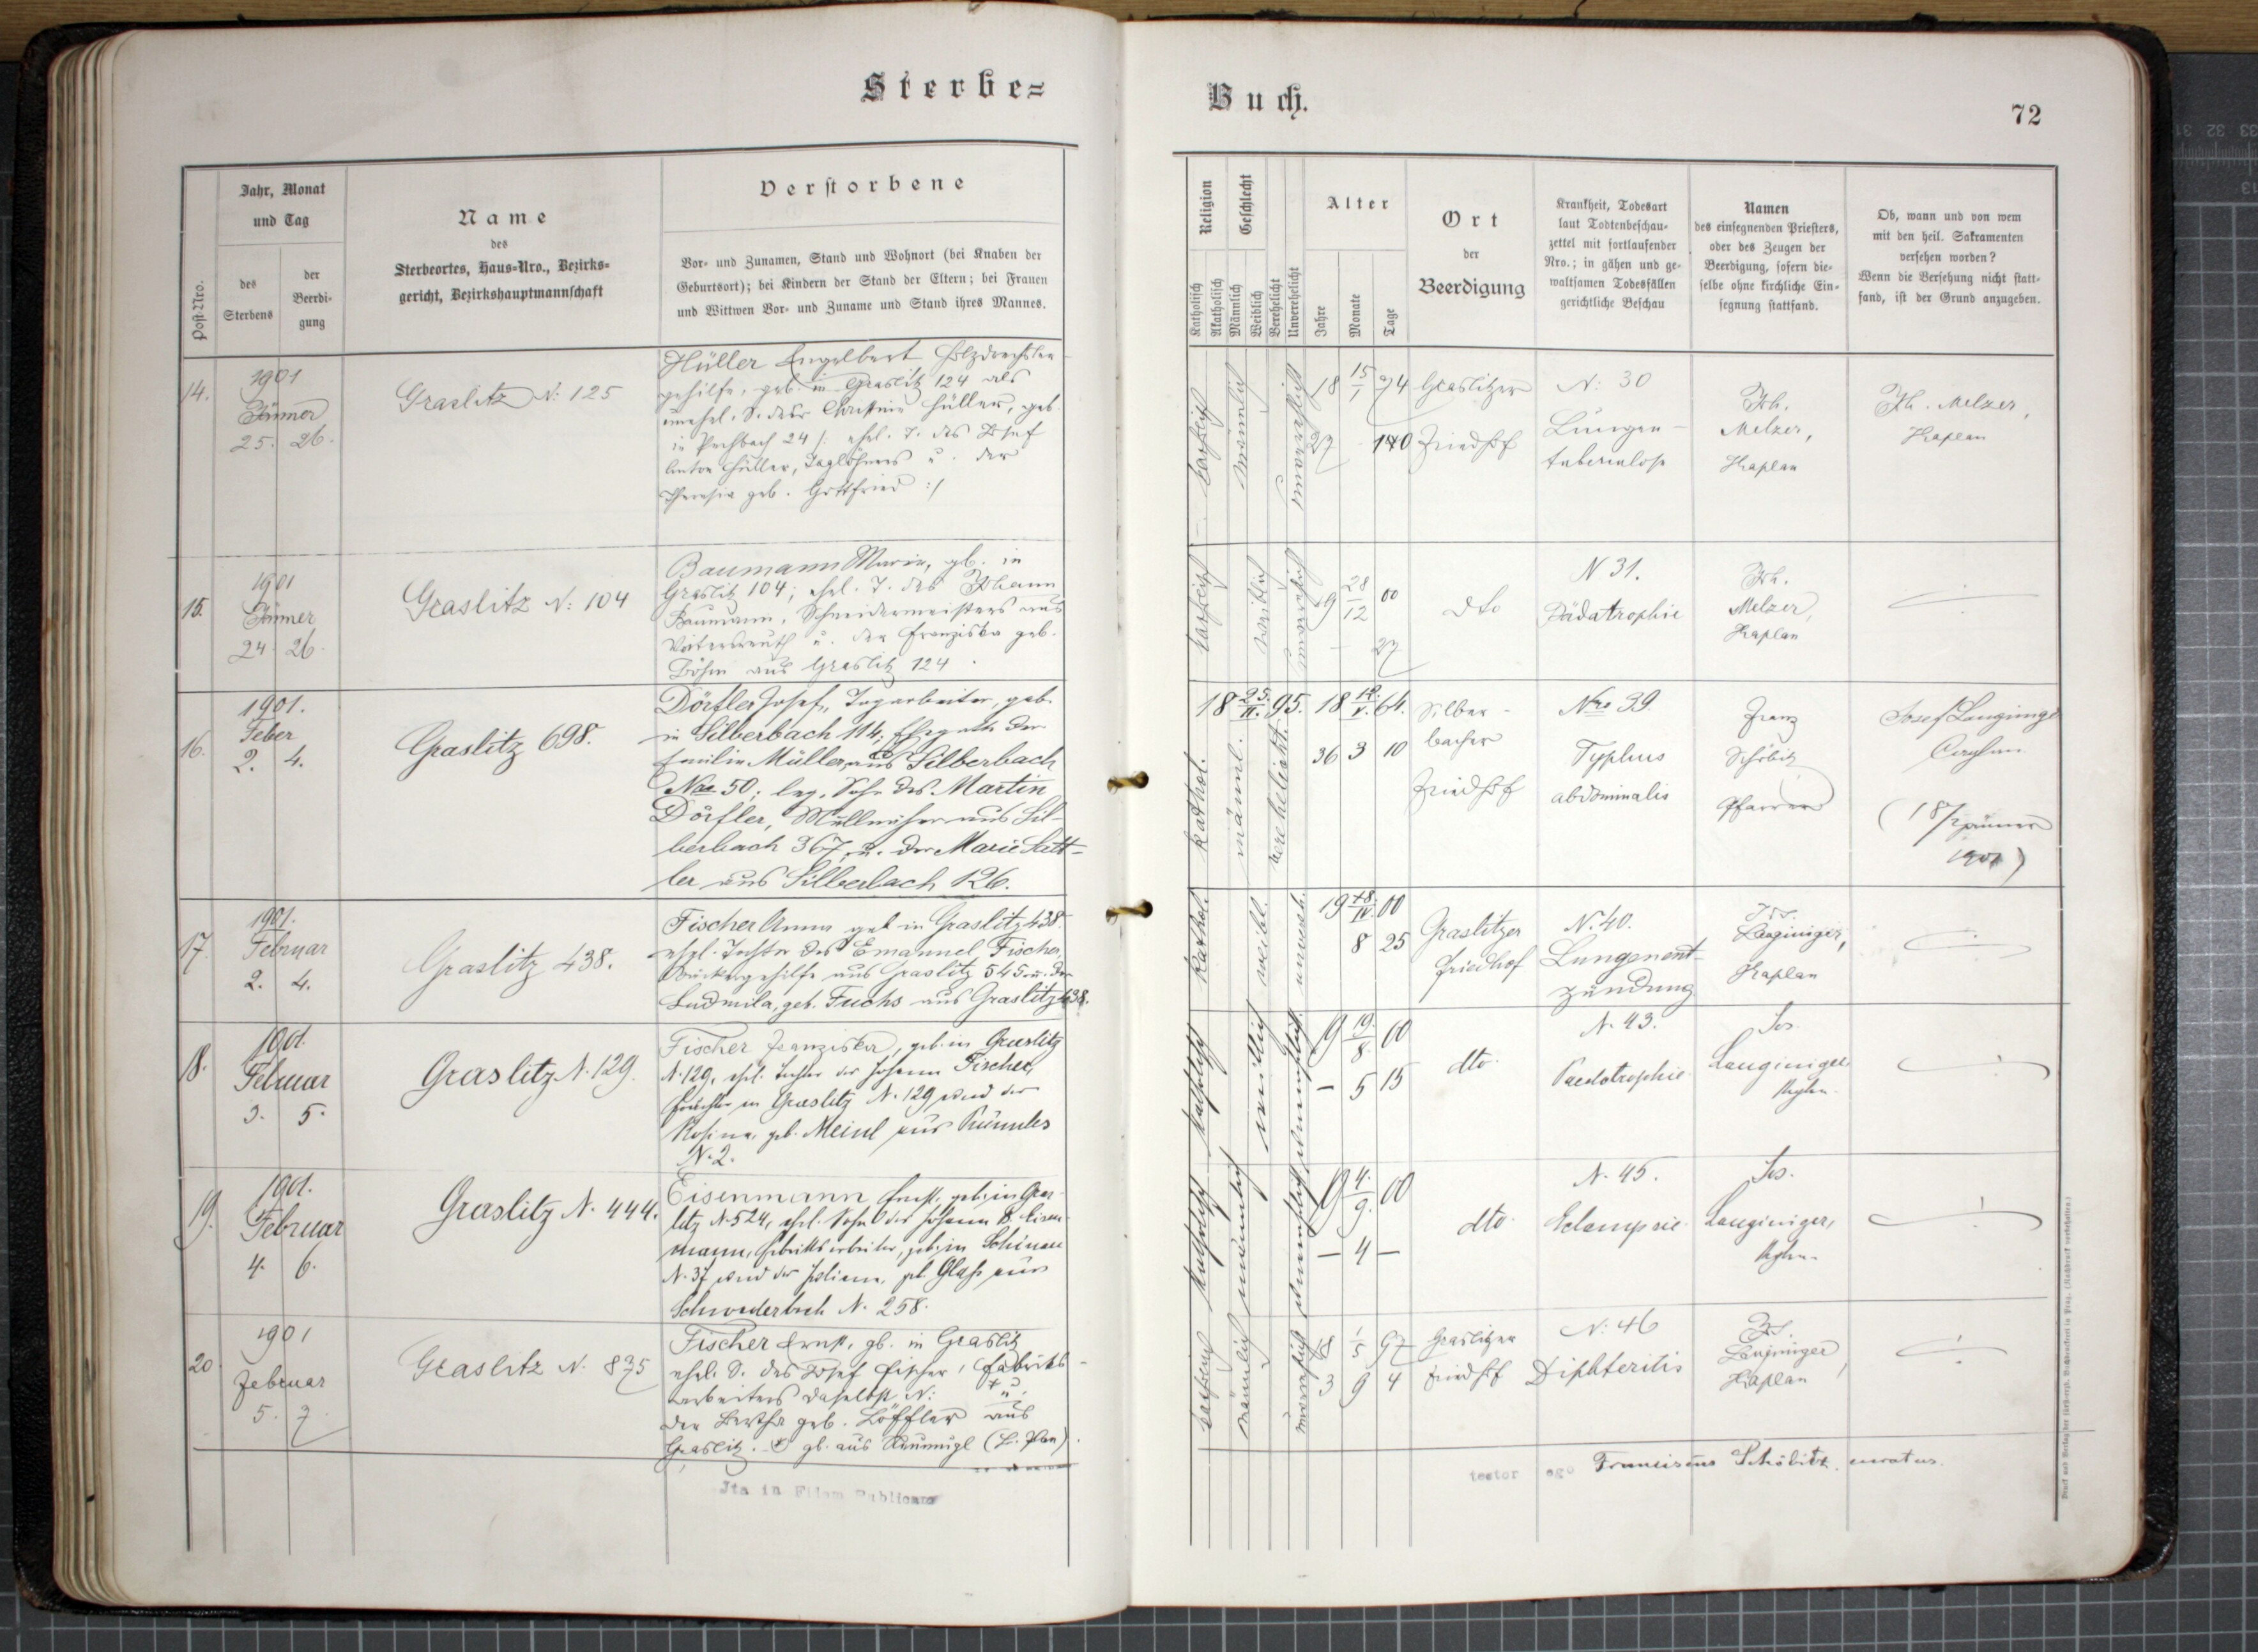 Sterbe=
Buch.
72
Post-Nro.
Jahr, Monat
und Tag
des
Sterbens
der
Beerdi-
gung
Name
des
Sterbeortes, Haus-Nro., Bezirks-
gericht, Bezirkshauptmannschaft
Verstorbene
Vor- und Zunamen, Stand und Wohnort (bei Knaben der
Geburtsort); bei Kindern der Stand der Eltern; bei Frauen
und Wittwen Vor- und Zuname und Stand ihres Mannes.
Religion
Katholisch
Akatholisch
Geschlecht
Männlich
Weiblich
Verehelicht
Unverehelicht
Alter
Jahre
Monate
Tage
Ort
der
Beerdigung
Krankheit, Todesart
laut Todtenbeschau-
zettel mit fortlaufender
Nro.; in gähen und ge-
waltsamen Todesfällen
gerichtliche Beschau
Namen
des einsegnenden Priesters,
oder des Zeugen der
Beerdigung, sofern die-
selbe ohne kirchliche Ein-
segnung stattfand.
Ob, wann und von wem
mit den heil. Sakramenten
versehen worden?
Wenn die Versehung nicht statt-
fand, ist der Grund anzugeben.
14.
1901
Jänner
25. 26.
Graslitz N: 125
Hüller Engelbert Holzdrechsler-
gehilfe, geb. in Graslitz 124 als
unehel. S. der Christine Hüller, geb.
in 24 /: ehel. T. des Josef
Anton Hüller, Taglöhners u. der
Theresia geb. Gottfried :/
katholisch
männlich
unverehelicht
18 15/1 74
27 - 10
Graslitzer
Friedhof
N: 30
Lungen-
tuberculose
Joh.
Melzer,
Kaplan
Joh. Melzer,
Kaplan
15.
1901
Jänner
24. 26.
Graslitz N: 104
Baumann Maria, gb. in
Graslitz 104; ehel. T. des Johann
Baumann, Schneidermeisters aus
u. der Franziska geb.
Böhm aus Graslitz 124.
katholisch
weiblich
unverehelicht
19 28/12 00
- 27
dto
N 31.
Pädatrophie
Joh.
Melzer,
Kaplan
16.
1901.
Feber
2. 4.
Graslitz 698.
Dörfler Josef, Tagarbeiter, geb.
in Silberbach 114; Ehegatte der
Emilie Müller aus Silberbach
Nro 50; leg. Sohn des Martin
Dörfler, aus Sil-
berbach 367, u. der Marie Satt-
ler aus Silberbach 126.
18 25./II. 95.
kathol.
männl.
verehelicht.
18 /V. 64.
36 3 10
Silber-
bacher
Friedhof
Nro 39
Typhus
abdominalis
Franz
Schöbitz
Pfarrer
Josef Langinger
Caplan
(18/ Jänner
1901)
17.
1901.
Februar
2. 4.
Graslitz 438.
Fischer Anna geb in Graslitz 438.
ehel. Tochter des Emanuel Fischer,
aus Graslitz 545 u. der
Ludmila, geb. Fuchs aus Graslitz 438.
kathol.
weibl.
unverehl.
19 /IV. 00
8 25
Graslitzer
Friedhof
N. 40.
Lungenent-
zündung
Jos.
Langinger,
Kaplan
18.
1901.
Februar
3. 5.
Graslitz N. 129.
Fischer Franziska, geb. in Graslitz
N. 129, ehel. Tochter des Johann Fischer,
in Graslitz N. 129 und der
Rosina, geb. Meinl aus
N. 2.
katholisch
weiblich
unverehelicht
19 19./8. 00
- 5 15
dto.
N. 43.
Paedatrophie.
Jos.
Langinger
Kpln.
19.
1901.
Februar
4. 6.
Graslitz N. 444.
Eisenmann Ernst, geb. in Gras-
litz N. 524, ehel. Sohn des Johann B. Eisen-
mann, Fabriksarbeiter, geb. in Schönau
N. 37 und der Juliana, geb. Glass aus
Schwaderbach N. 258.
katholisch
männlich
unverehelicht
19 4./9. 00
- 4 -
dto.
N. 45.
Eclampsie.
Jos.
Langinger,
Kpln.
20
1901
Februar
5. 7.
Graslitz N. 875
Fischer Ernst, gb. in Graslitz
ehel. S. des Josef Fischer, Fabriks-
arbeiters daselbst N: + u.
der Bertha geb. Löffler aus
Graslitz. + gb. aus (B. Plan).
katholisch
männlich
unverehelicht
18 1/5 97
3 9 4
Graslitzer
Friedhof
N: 46
Diphteritis
Jos.
Langinger,
Kaplan
Ita in Fidem Publicam
testor ego Franciscus Schöbitz, curatus.
Druck und Verlag der fürsterzb. Buchdruckerei in Prag. (Nachdruck vorbehalten.)